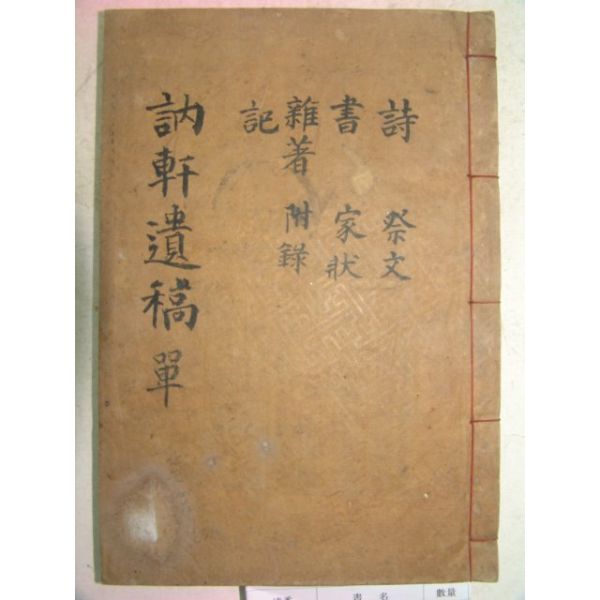 詩 祭文
書 家狀
雜著 附錄
記
訥軒遺稿 單
書名 數量